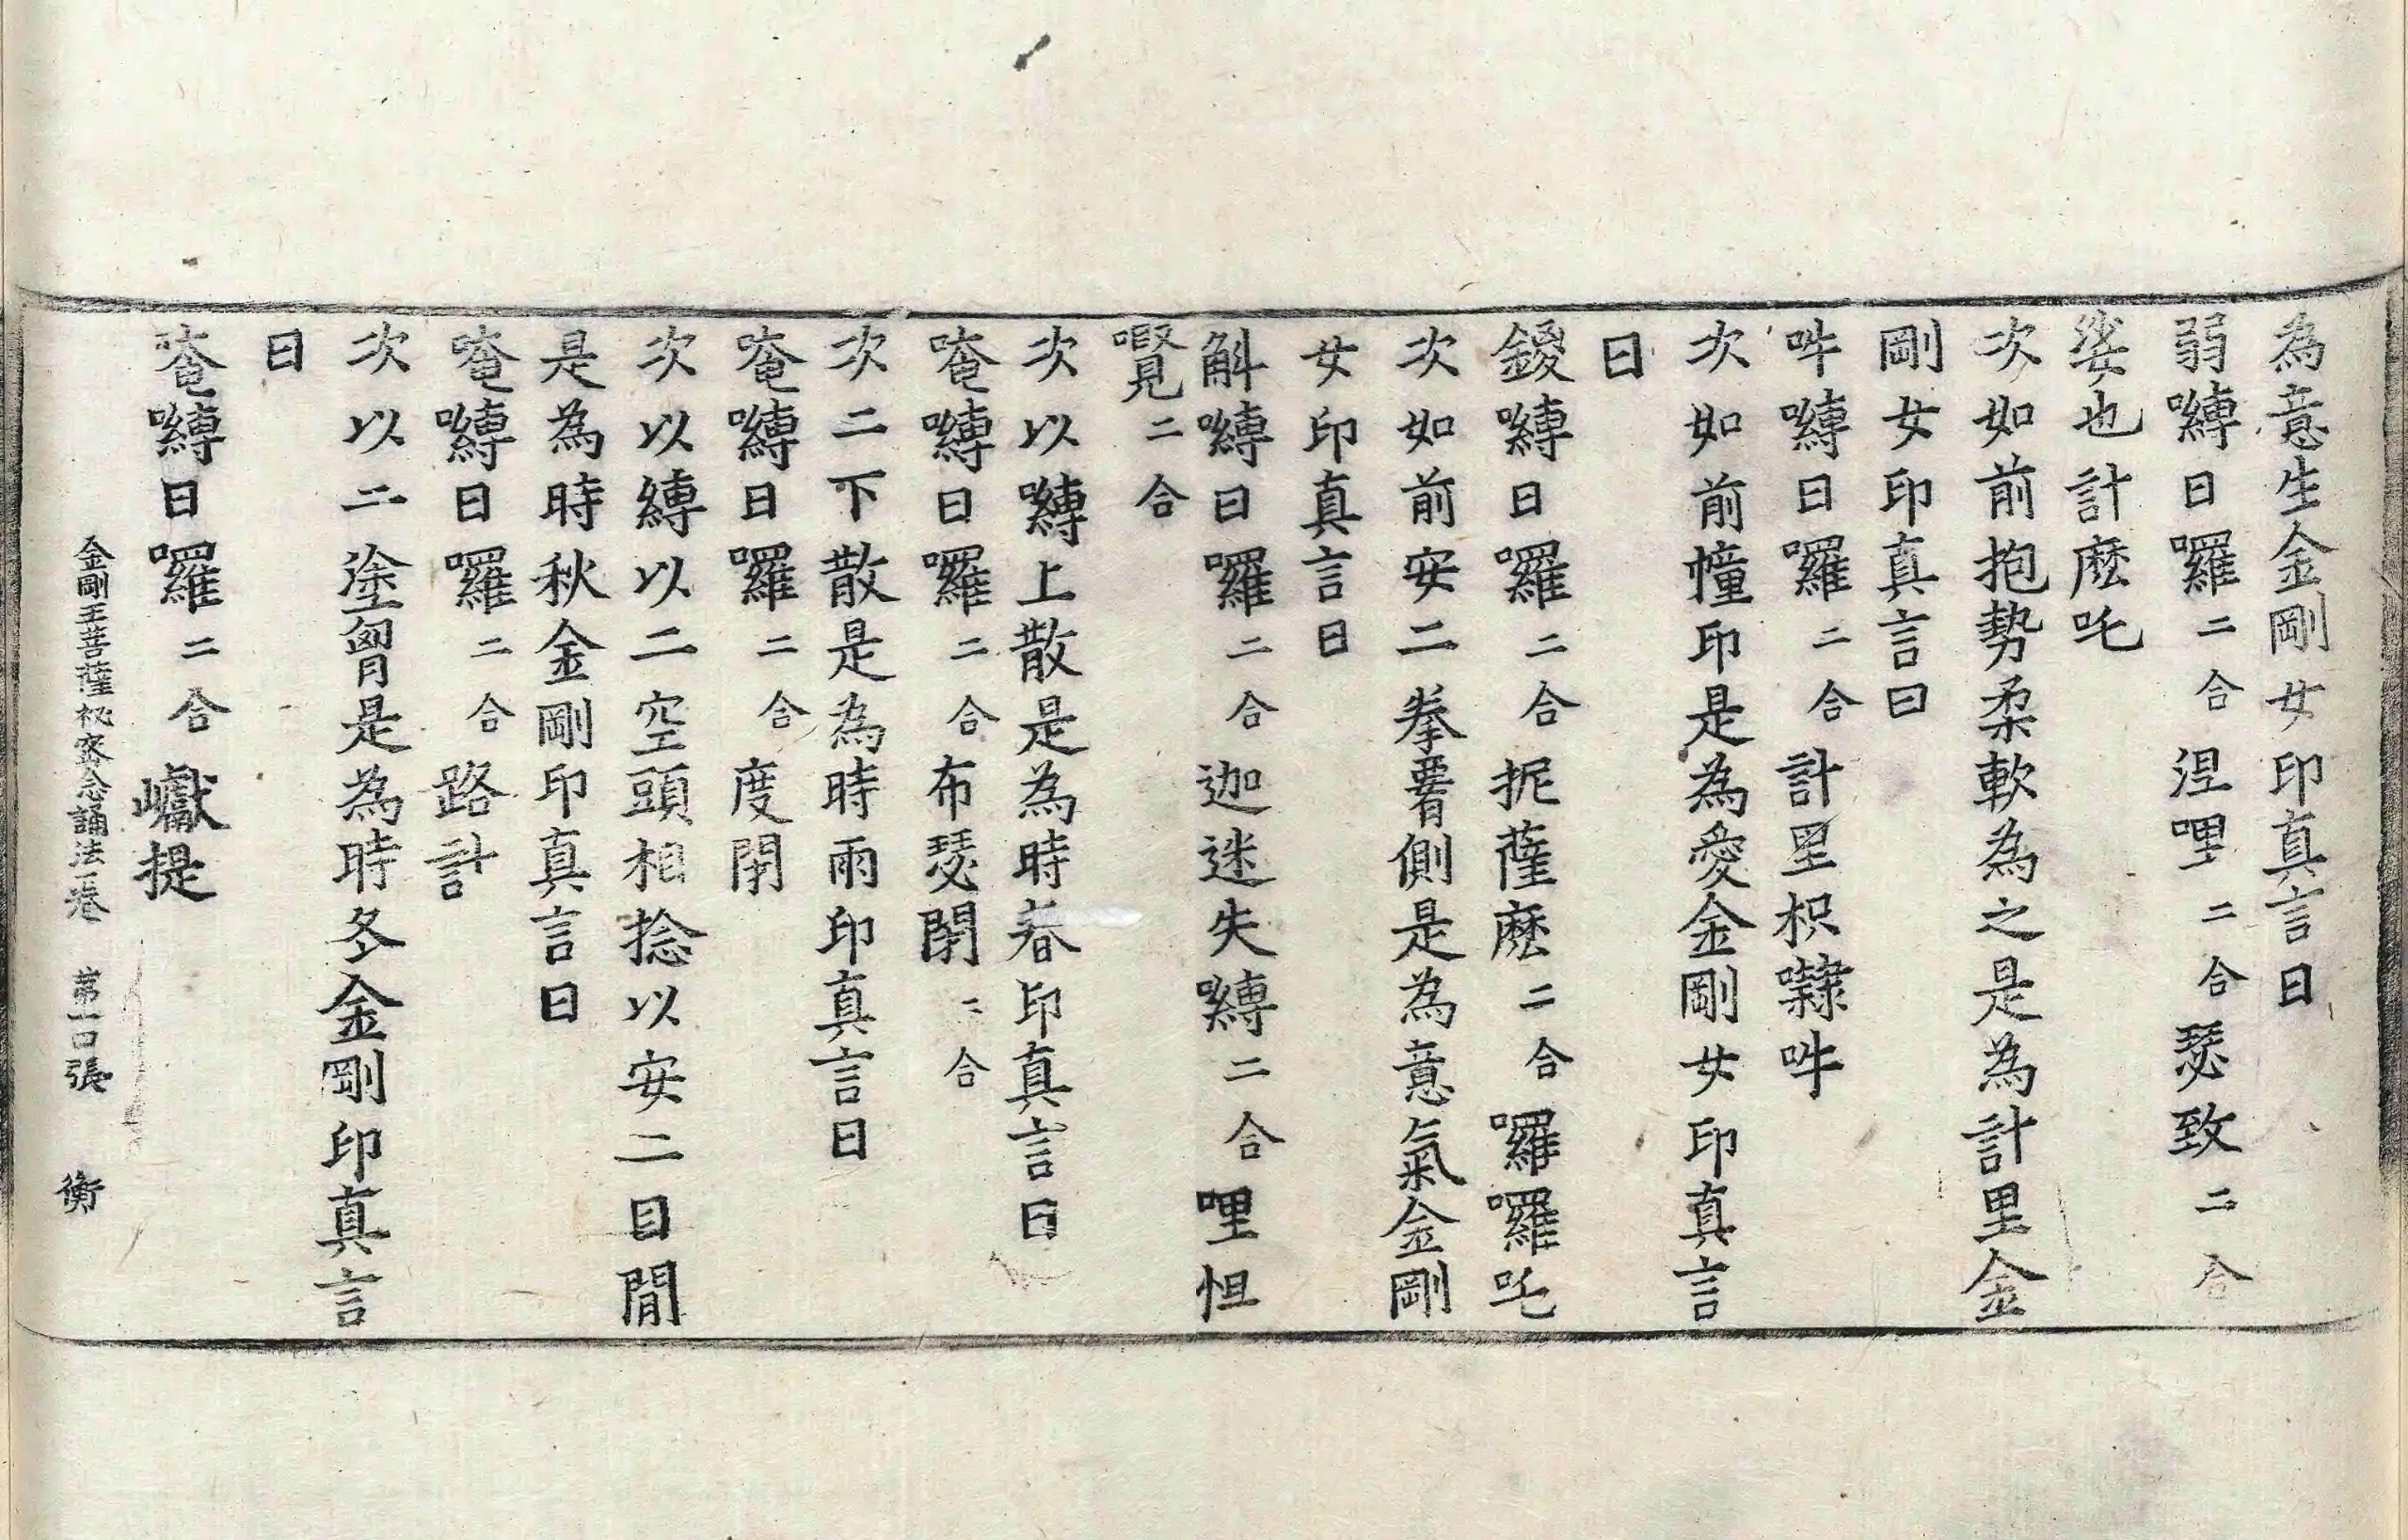 為意生金剛女印真言曰
弱嚩日囉二合涅哩二合瑟致二合
娑也計麽吒
次如前抱勢柔軟為之是為計里金
剛女印真言曰
吽嚩日囉二合計里枳㘑吽
次如前幢印是為愛金剛女印真言
曰
鑁嚩日囉二合抳薩麽二合囉囉吒
次如前安二拳䏶側是為意氣金剛
女印真言曰
斛嚩日囉二合迦迷失嚩二合哩怛
㘕二合
次以嚩上散是為時春印真言曰
唵嚩日囉二合布瑟閉二合
次二下散是為時雨印真言曰
唵嚩日囉二合度閉
次以縛以二空頭相捻以安二目間
是為時秋金剛印真言曰
唵嚩日囉二合路計
次以二塗胷是為時冬金剛印真言
曰
唵嚩日囉二合巘提
金剛王菩薩秘密念誦法一卷 第一口張 衡